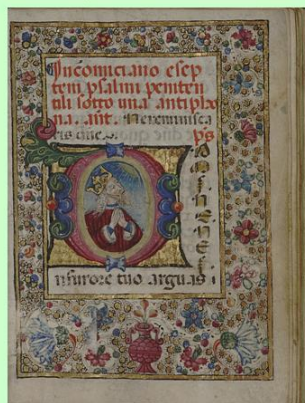 Incomiciano e sep
tem psalmi peniten
tili sotto una antipho
na. ant. Ne reminisca
ris dñe. ps
D
omine ne
in furore tuo arguas